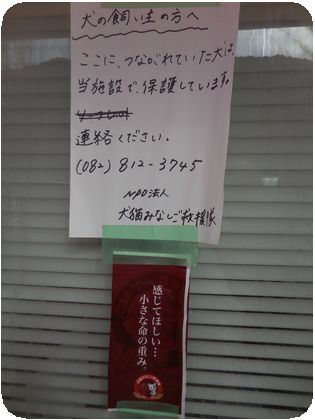 犬の飼い主の方へ
ここに、つながれていた犬は、
当施設で、保護しています。
連絡ください。
(082) 812-3745
NPO法人
犬猫みなしご救援隊
感じてほしい…
小さな命の重み。